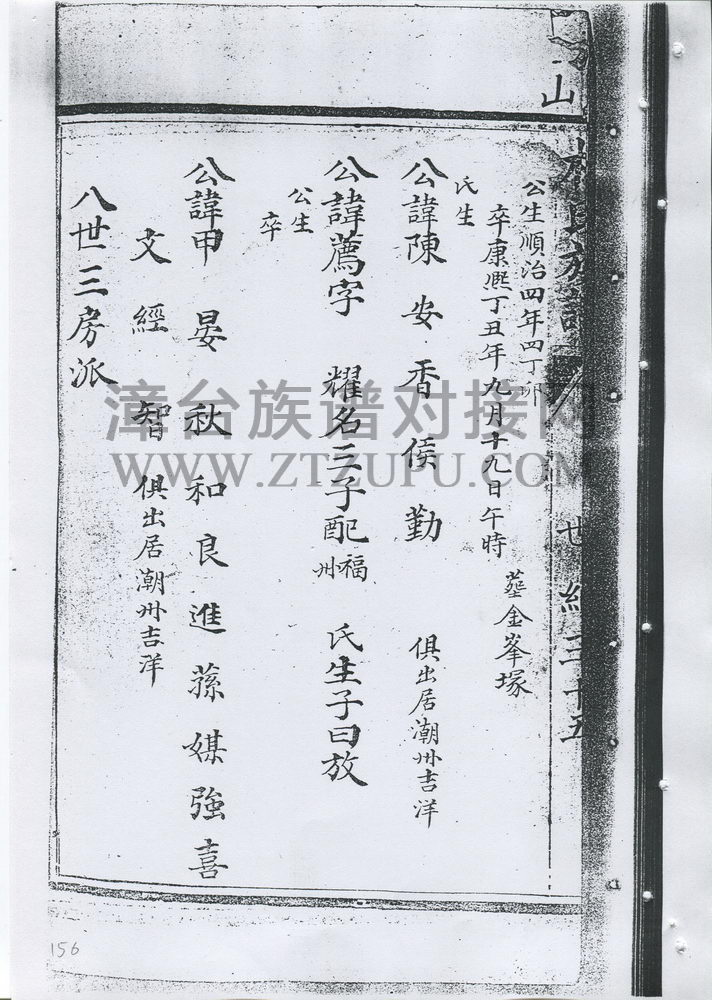 公生順治四年四丁卯
卒康熙丁丑年九月十九日午時
塟金峯塚
氏生
公諱陳安香侯勤
俱出居潮州吉洋
公諱薦字 耀名三子配福州 氏生子曰放
公生
卒
公諱甲晏秋和良進蓀媒強喜
文經智 俱出居潮州吉洋
八世三房派
山
族譜
世紀三十五
漳台族谱对接网
WWW.ZTZUPU.COM
156